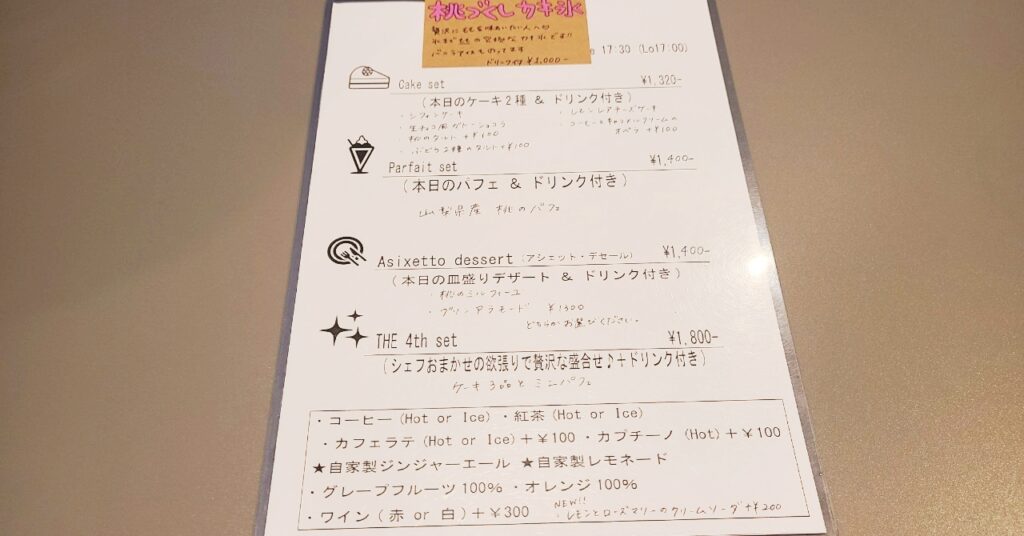 桃づくしカキ氷
贅沢にももを味わいたい人への
パニラアイスものってます
ドリンク付 ¥
17:30 (Lo17:00)
Cake set ¥1,320-
(本日のケーキ2種 & ドリンク付き)
・シフォンケーキ ・レモンレアチーズケーキ
・生チョコ風ガトーショコラ ・コーヒーとキャラメルクリームの
・桃のタルト +¥100 オペラ +¥100
・ぶどう2種のタルト+¥100
Parfait set ¥1,400-
(本日のパフェ & ドリンク付き)
山梨県産 桃のパフェ
Asixetto dessert (アシェット・デセール) ¥1,400-
(本日の皿盛りデザート & ドリンク付き)
・桃のミルフィーユ
・プリンアラモード ¥1300
どちらかお選びください。
THE 4th set ¥1,800-
(シェフおまかせの欲張りで贅沢な盛合せ♪+ドリンク付き)
ケーキ3品とミニパフェ
・コーヒー (Hot or Ice) ・紅茶 (Hot or Ice)
・カフェラテ (Hot or Ice)+¥100 ・カプチーノ (Hot)+¥100
★自家製ジンジャーエール ★自家製レモネード
・グレープフルーツ100% ・オレンジ100%
NEW!!
・ワイン(赤 or 白)+¥300 ・レモンとローズマリーのクリームソーダ +¥200